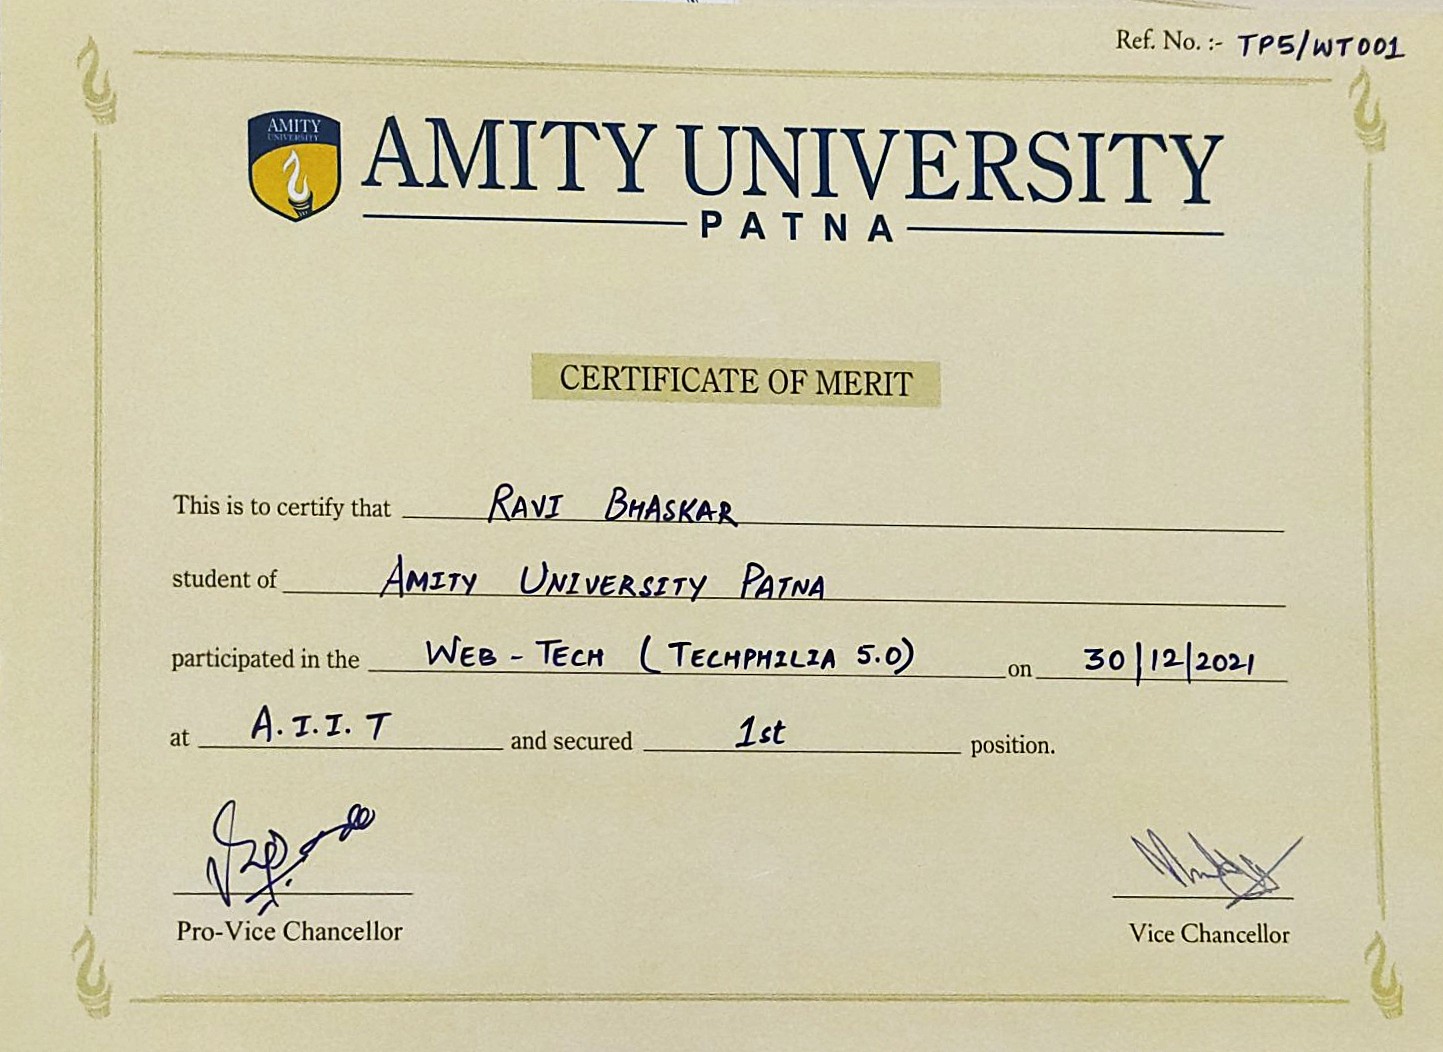 Ref. No. :- TP5/WT001
AMITY
UNIVERSITY
AMITY UNIVERSITY
PATNA
CERTIFICATE OF MERIT
This is to certify that RAVI BHASKAR
student of AMITY UNIVERSITY PATNA
participated in the WEB-TECH (TECHPHILIA 5.0) on 30/12/2021
at A.I.I.T and secured 1st position.
Pro-Vice Chancellor Vice Chancellor